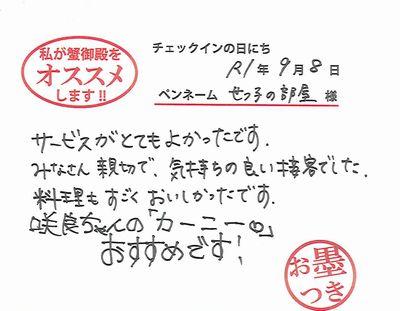 私が蟹御殿を
オススメ
します!!
チェックインの日にち
R1年9月8日
ペンネーム せつ子の部屋 様
サービスがとてもよかったです.
みなさん親切で、気持ちの良い接客でした.
料理もすごくおいしかったです.
咲良ちゃんの「カーニー」
おすすめです!
お墨
つき